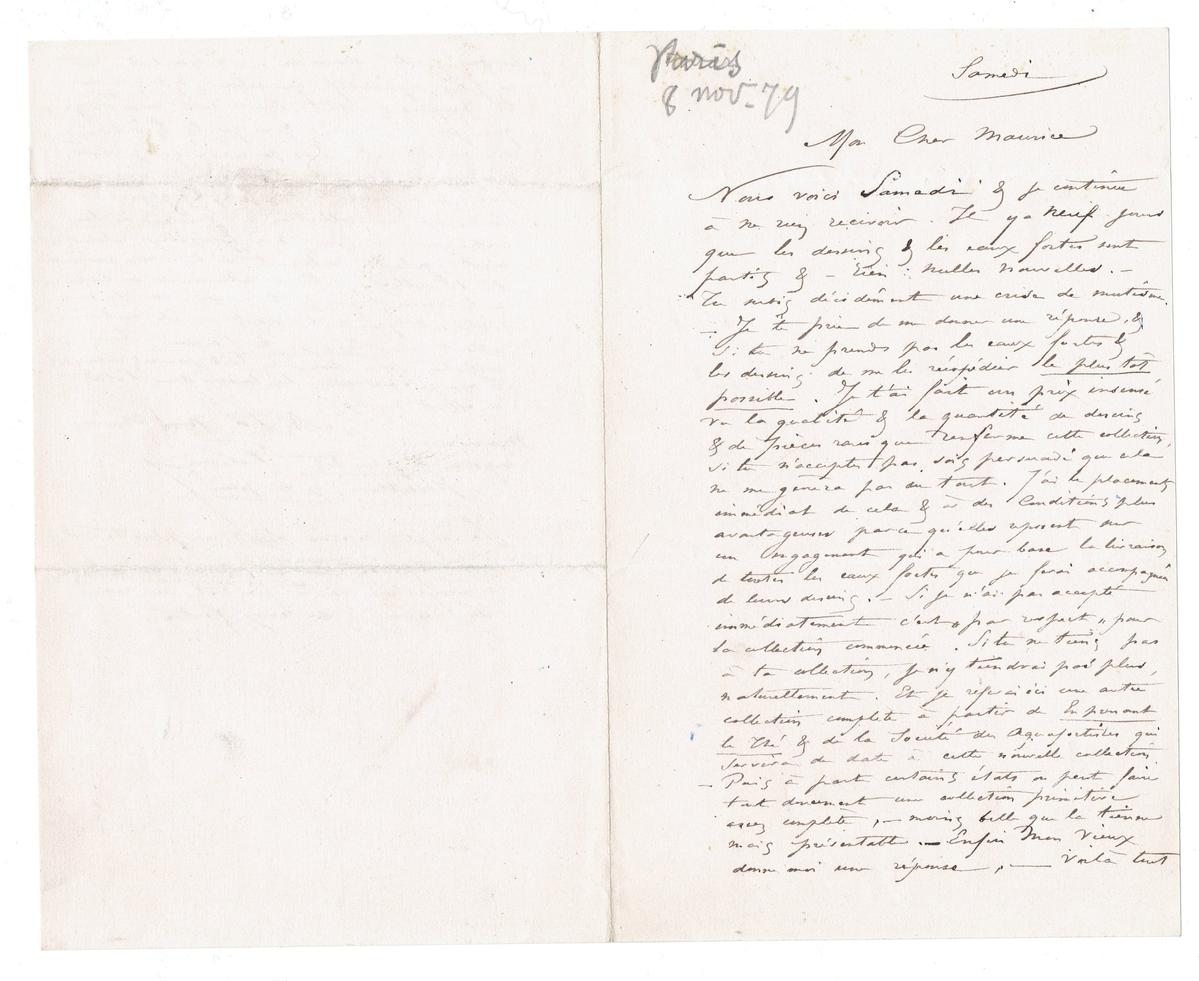 Paris
8 nov. 79
Samedi
Mon Cher Maurice
Nous voici Samedi & je continue
à ne rien recevoir. Il y a neuf jours
que les dessins & les eaux fortes sont
partis & – Rien : nulles nouvelles. –
Tu subis décidément une crise de mutisme.
– Je te prie de me donner une réponse, &
si tu ne prends pas les eaux fortes &
les dessins de me les réexpédier le plus tôt
possible. Je t'ai fait un prix insensé
vu la qualité & la quantité de dessins
& de pièces rares que renferme cette collection,
si tu n'acceptes pas, sois persuadé que cela
ne me gênera pas du tout. J'ai le placement
immédiat de cela & à des Conditions plus
avantageuses parce qu'elles reposent sur
un engagement qui a pour base la livraison
de toutes les eaux fortes que je ferai accompagnées
de leurs dessins. – Si je n'ai pas accepté
immédiatement c'est „par respect„ pour
la collection commencée. Si tu ne tiens pas
à ta collection, je n'y tiendrai pas plus,
naturellement. Et je referai ici une autre
collection complète à partir de En prenant
le Thé & de la Société des Aquafortistes qui
servira de date à cette nouvelle collection
– Puis à part certains états on peut faire
tout doucement une collection primitive
assez complète, – moins belle que la tienne
mais présentable. – Enfin Mon Vieux
donne moi une réponse, — Voilà tout